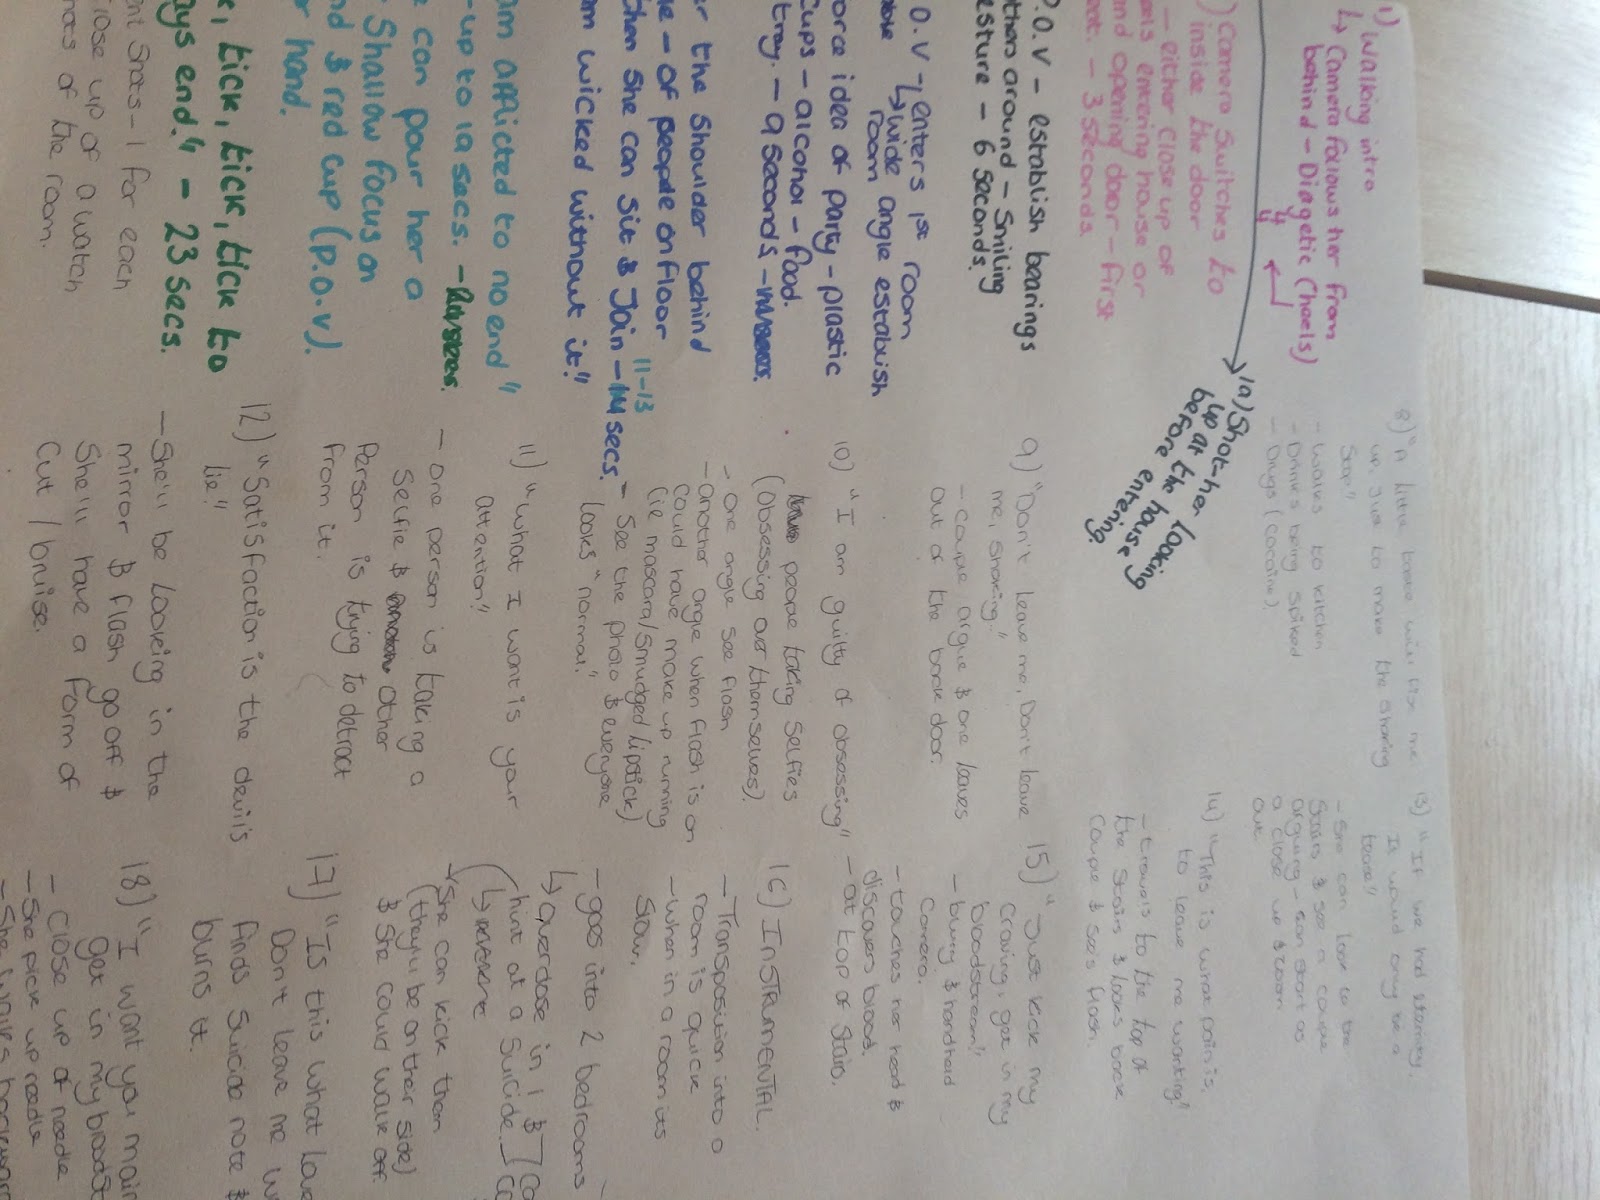 1) Walking intro
↳ Camera follows her from
behind - Diagetic (heels)
) Camera switches to
inside the door
- either close up of
heels entering house or
and opening door - first
- 3 seconds.
1a) Shot - her looking
up at the house
before entering
P.O.V - establish bearings
others around - Smiling
gesture - 6 seconds.
P.O.V - enters 1st room
↳ wide angle establish
room
force idea of party - plastic
cups - alcohol - food.
tray. - 9 seconds -
er the shoulder behind
- of people on floor
then she can sit & Join - 11-13 secs.
am wicked without it."
am afflicted to no end"
- up to 19 secs.
can pour her a
Shallow focus on
& red cup (P.O.V).
r hand.
tick, tick, tick to
ays end." - 23 secs.
Shots - 1 for each
close up of a watch
of the room.
8) "A little more will fix me
up, just to make the shaking
stop"
- walks to kitchen
- Drinks being spiked
- Drugs (cocaine).
9) "Don't leave me, Don't leave
me, shaking."
- couple argue & one leaves
out of the back door.
10) "I am guilty of obsessing"
people taking selfies
(obsessing over themselves).
- one angle see flash
- another angle when flash is on
could have make up running
(ie mascara/smudged lipstick)
- See the photo & everyone
looks "normal."
11) "What I want is your
attention"
- one person is taking a
selfie & other
Person is trying to detract
from it.
12) "Satisfaction is the devil's
lie"
- She'll be looking in the
mirror & flash go off &
she'll have a form of
cut / bruise.
13) "If we had eternity.
It would only be a
tease"
- She can look to the
stairs & see a couple
arguing - can start as
a close up & zoom
out.
14) "This is what pain is,
to leave me wanting"
- travels to the top of
the stairs & looks back
couple & sees flash.
15) "Just kick my
craving, get in my
bloodstream"
- blurry & handheld
camera.
- touches her head &
discovers blood.
- at top of stairs.
16) INSTRUMENTAL.
- Transposition into a
room is quick
- when in a room its
slow.
- goes into 2 bedrooms
↳ overdose in 1 &
hint at a suicide.
(↳ reverse
↳ She can kick them
(they'll be on their side)
& she could walk off
17) "Is this what love
Don't leave me w
finds Suicide note &
burns it.
18) "I want you main
get in my bloodst
- close up of needle
- She pick up needle
- She walks backward